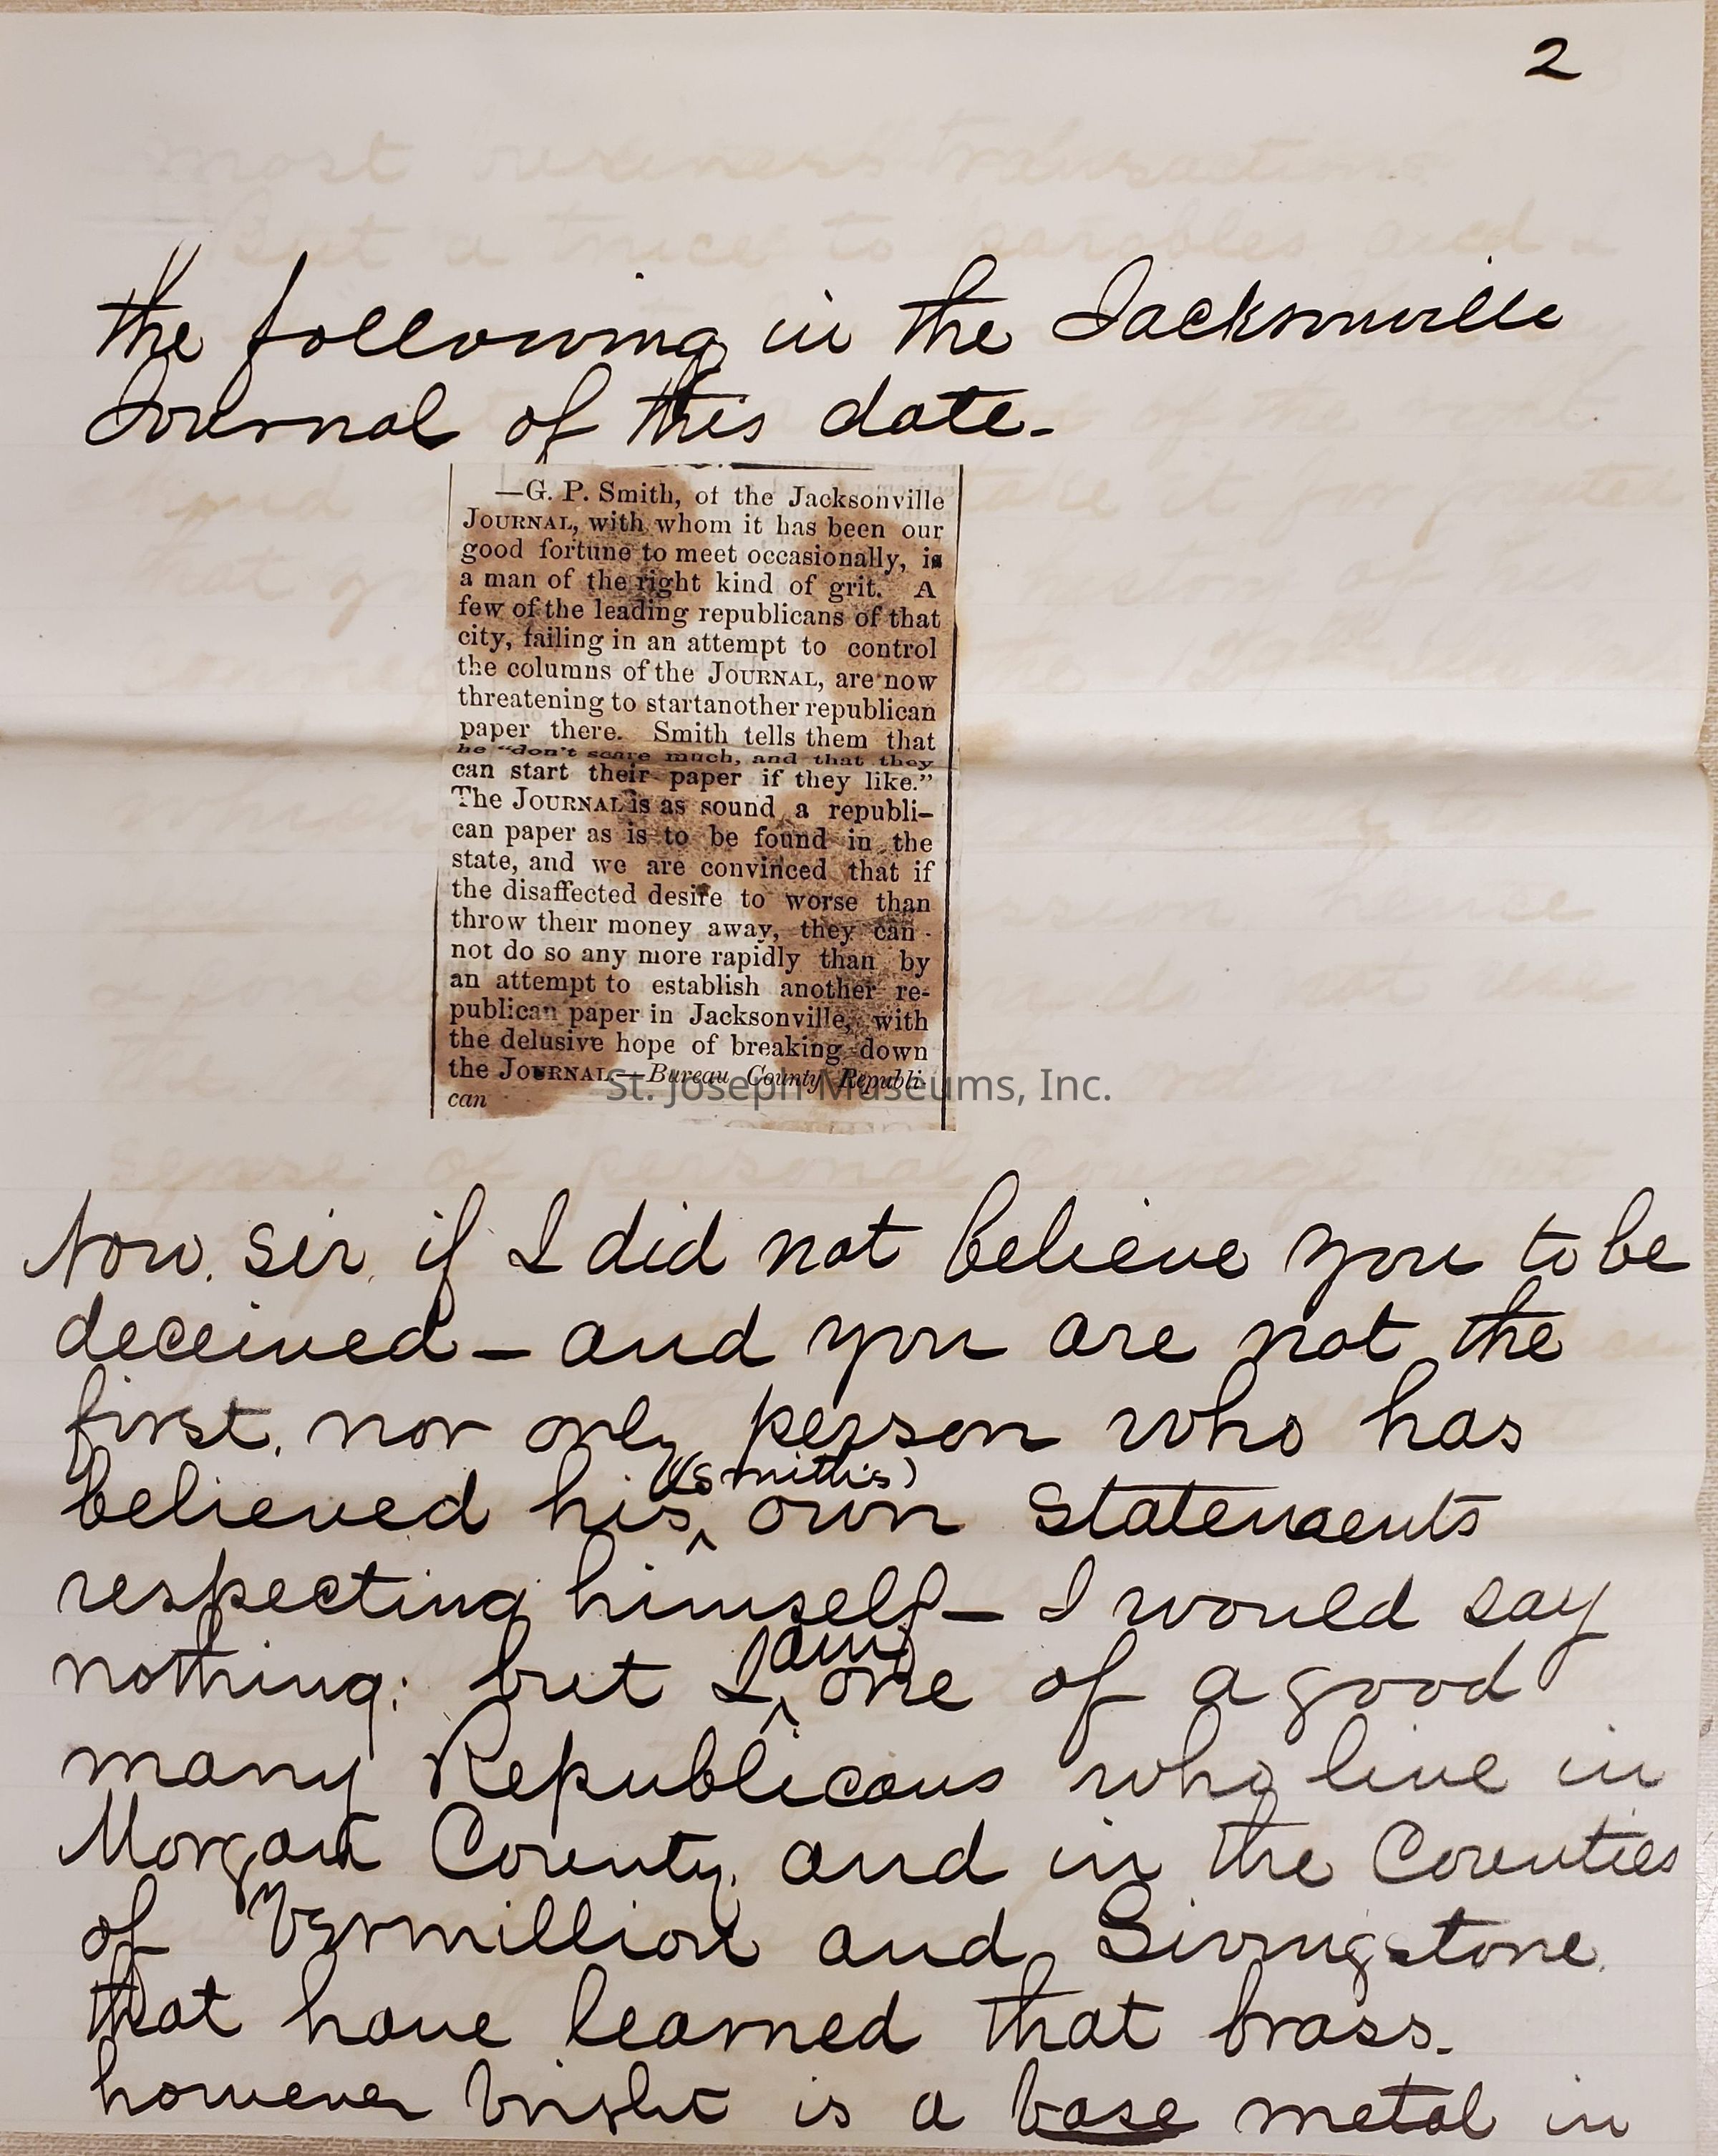 2
the following in the Jacksonville
Journal of this date-
—G. P. Smith, of the Jacksonville
JOURNAL, with whom it has been our
good fortune to meet occasionally, is
a man of the right kind of grit. A
few of the leading republicans of that
city, failing in an attempt to control
the columns of the JOURNAL, are now
threatening to startanother republican
paper there. Smith tells them that
he "don't scare much, and that they
can start their paper if they like."
The JOURNAL is as sound a republi-
can paper as is to be found in the
state, and we are convinced that if
the disaffected desire to worse than
throw their money away, they can-
not do so any more rapidly than by
an attempt to establish another re-
publican paper in Jacksonville, with
the delusive hope of breaking down
the JOURNAL.—Bureau County Republi-
can
St. Joseph Museums, Inc.
Now, sir, if I did not believe you to be
deceived – and you are not the
first, nor only person who has
(Smith's)
believed his ^ own statements
respecting himself – I would say
am
nothing: but I ^ one of a good
many Republicans who live in
Morgan County, and in the Counties
of Vermillion and Livingstone,
that have learned that brass-
however bright is a base metal in